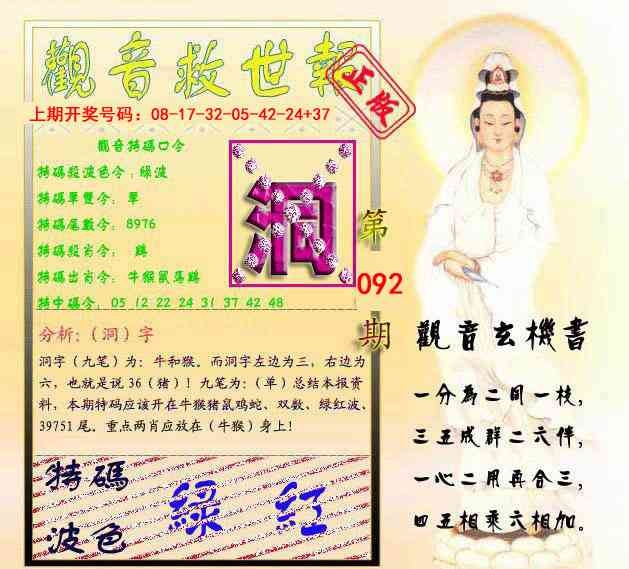 觀音救世報
正版
上期开奖号码：08-17-32-05-42-24+37
觀音特碼口令
特碼殺波色令：綠波
特碼單雙令：單
特碼尾數令：8976
特碼殺肖令：鷄
特碼出肖令：牛猴鼠馬鷄
特中碼令：05 12 22 24 31 37 42 48
洞
第
092
期
分析：（洞）字
洞字（九笔）为：牛和猴。而洞字左边为三，右边为
六，也就是说 36（猪）！九笔为：（单）总结本报资
料，本期特码应该开在牛猴猪鼠鸡蛇、双数、绿红波、
39751 尾。重点两肖应放在（牛猴）身上！
特碼
波色
綠 紅
觀音玄機書
一分為二間一枝，
三五成群二六伴，
一心二用再合三，
四五相乘六相加。